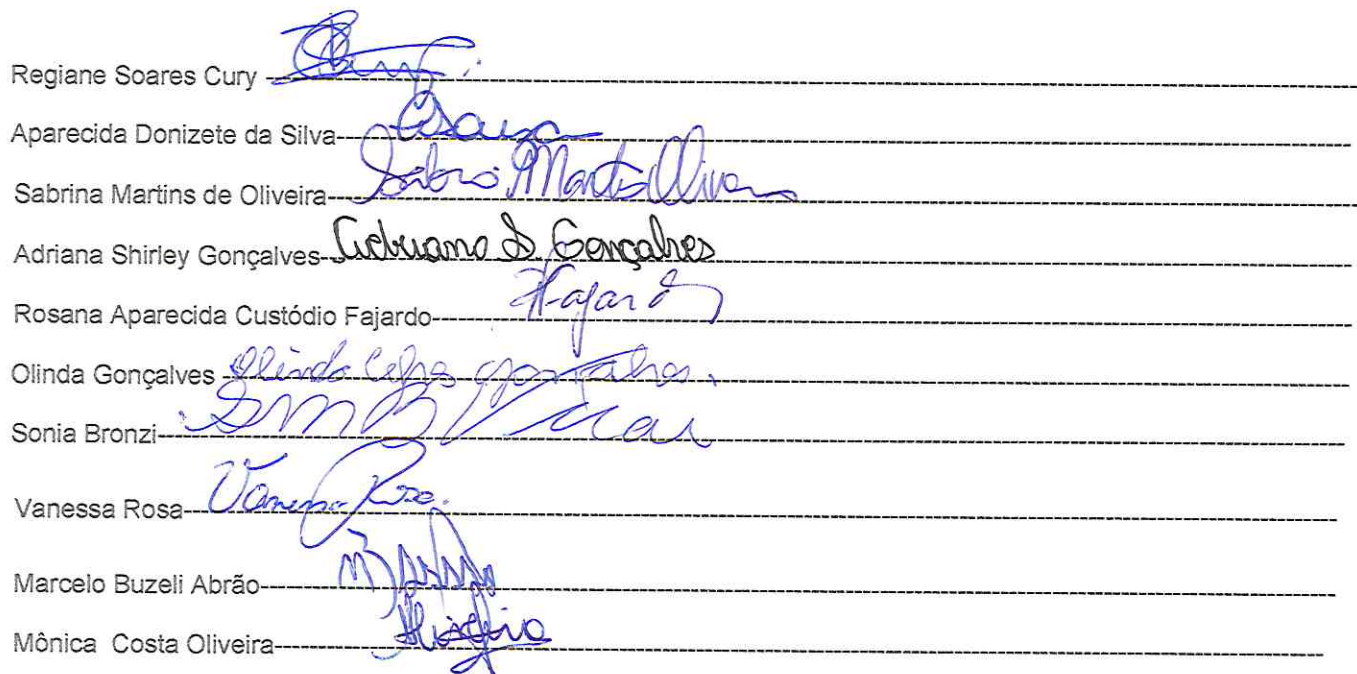 Regiane Soares Cury
Aparecida Donizete da Silva
Sabrina Martins de Oliveira
Adriana Shirley Gonçalves Adriana S Gonçalves
Rosana Aparecida Custódio Fajardo Fajardo
Olinda Gonçalves Olinda Gonçalves.
Sonia Bronzi
Vanessa Rosa Vanessa Rosa.
Marcelo Buzeli Abrão
Mônica Costa Oliveira